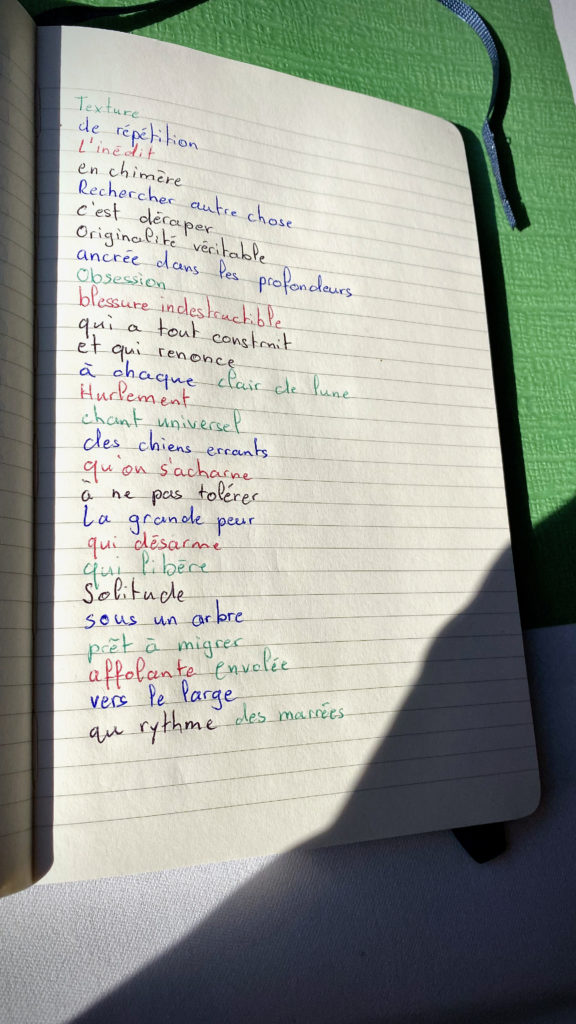 Texture
de répétition
L'inédit
en chimère
Rechercher autre chose
c'est déraper
Originalité véritable
ancrée dans les profondeurs
Obsession
blessure indestructible
qui a tout construit
et qui renonce
à chaque clair de lune
Hurlement
chant universel
des chiens errants
qu'on s'acharne
à ne pas tolérer
La grande peur
qui désarme
qui libère
Solitude
sous un arbre
prêt à migrer
affolante envolée
vers le large
au rythme des marrées